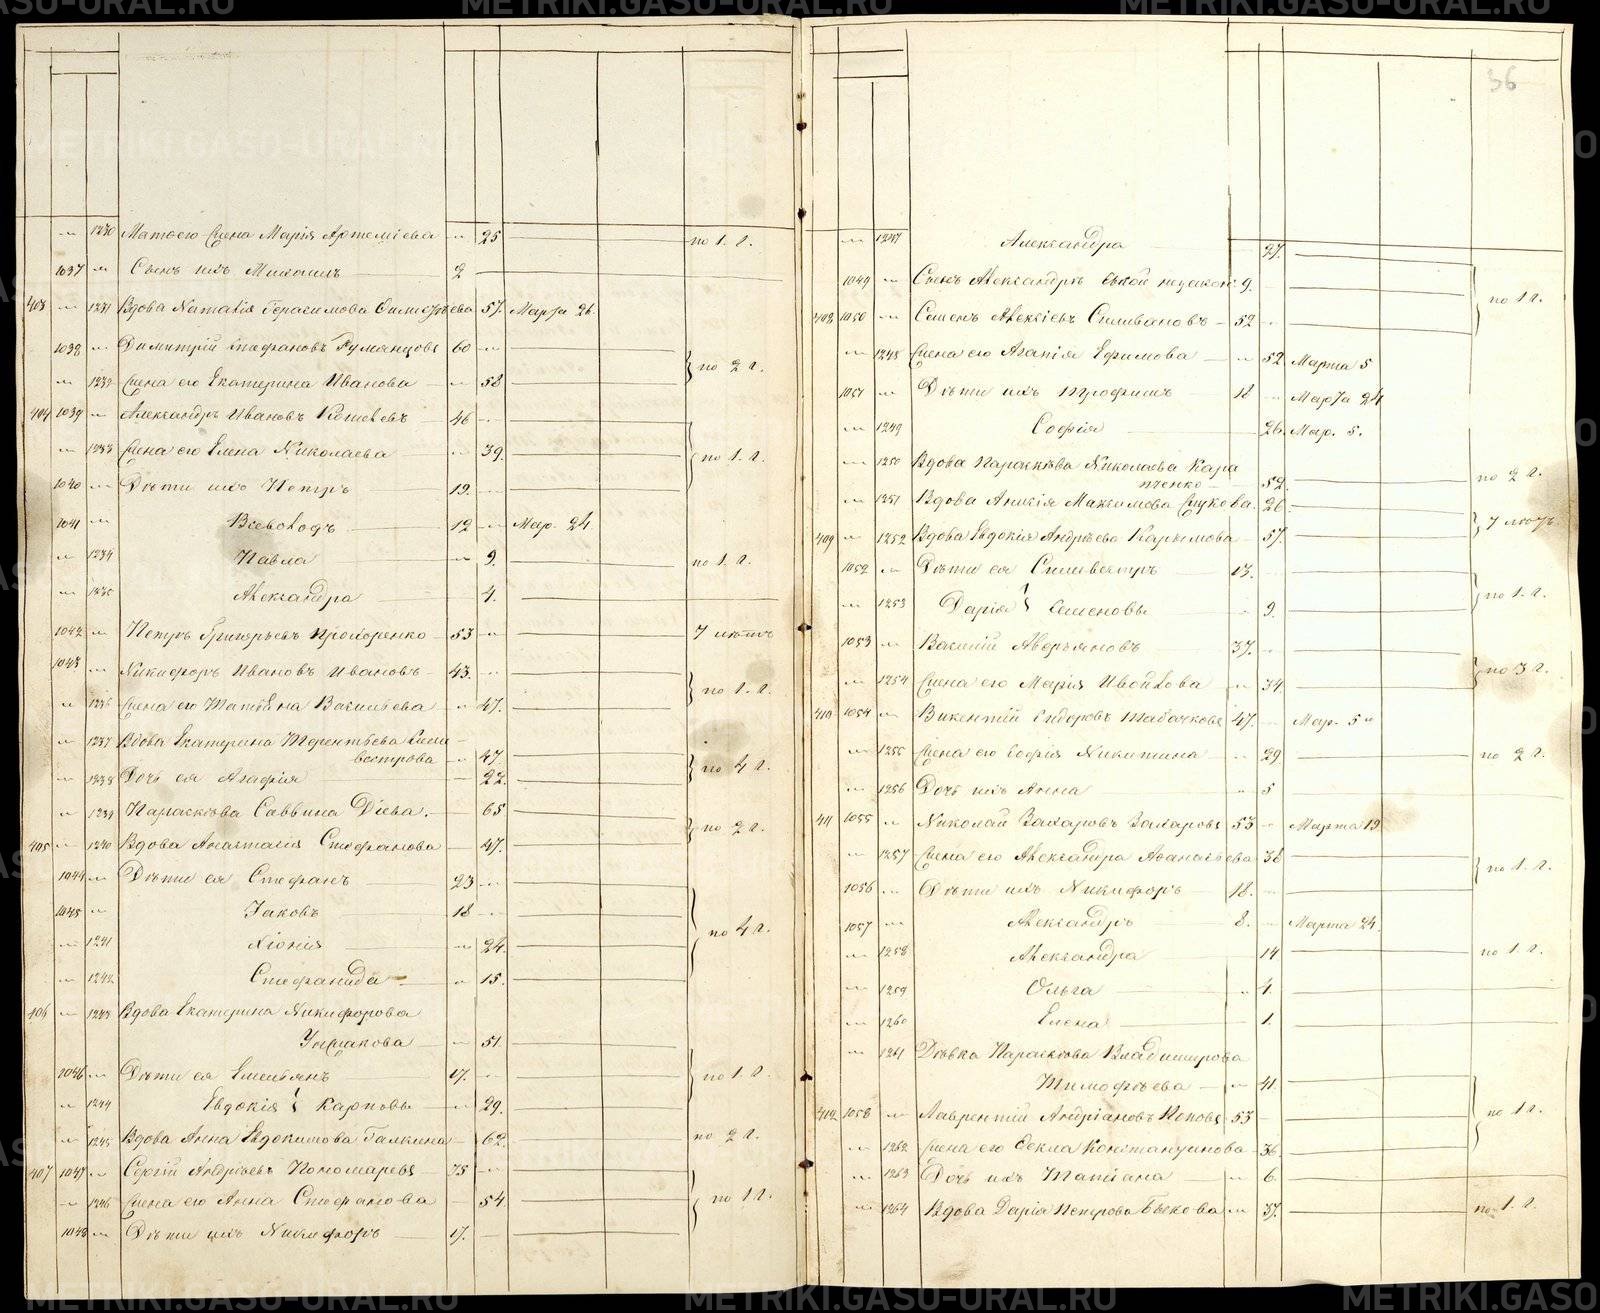 36
1230 Матѳего Жена Марія Артеміева 25 по 1. г.
1037 Сынъ ихъ Михаилъ 2
403 1231 Вдова Наталія Герасимова 57. Марта 26.
1038 Димитрій Стефановъ Румянцовъ 60
1232 Жена его Екатерина Иванова 58 по 2 г.
404 1039 Александръ Ивановъ 46
1233 Жена его Елена Николаева 39. по 1. г.
1040 Дѣти ихъ Петръ 19.
1041 Всеволодъ 12 Мар. 24
1234 Павла 9. по 1. г.
1235 Александра 4.
1042 Петръ Григорьевъ Прохоренко 53 7 лѣтъ
1043 Никифоръ Ивановъ Ивановъ 43.
1236 Жена его Татіана Васильева 47. по 1. г.
1237 Вдова Екатерина Терентьева Сили-
вестрова 47
1238 Дочь ея Агафія 22. по 4 г.
1239 Параскева Саввина Діева. 65
405 1240 Вдова Анастасія Стефанова 47. по 2 г.
1044 Дѣти ея Стефанъ 23
1045 Іаковъ 18
1241 Хіонія 24. по 4 г.
1242 Стефанида 15.
406 1243 Вдова Екатерина Никифорова
Ушакова 51.
1046 Дѣти ея Емельянъ 17. по 1. г.
1244 Евдокія } Карповы 29.
1245 Вдова Анна Евдокимова Галкина 62. по 2 г.
407 1047 Сергій Андреевъ Пономаревъ 75
1246 Жена его Анна Стефанова 54. по 1 г.
1048 Дѣти ихъ Никифоръ 17.
1247 Александра 27.
1049 Сынъ Александръ 9. по 1 г.
408 1050 Семенъ Алексіевъ Силивановъ 52
1248 Жена его Агапія Ефимова 52 Марта 5
1051 Дѣти ихъ Трофимъ 18 Марта 24
1249 Софія 26. Мар. 5.
1250 Вдова Параскева Николаева Кара
пченко 52. по 2 г.
1251 Вдова Анисія Максимова Жукова. 26 7 лѣтъ
409 1252 Вдова Евдокія Андреева Каримова 57.
1052 Дѣти ея Сильвестръ 13.
1253 Дарія } Семеновы 9. по 1. г.
1053 Василій Аверьяновъ 37.
1254 Жена его Марія Ивойлова 34 по 3 г.
410 1054 Викентій Сидоровъ Табачковъ 47. Мар. 5
1255 Жена его Софія Никитина 29 по 2 г.
1256 Дочь ихъ Анна 5
411 1055 Николай Захаровъ Захаровъ 53 Марта 19
1257 Жена его Александра Аѳанасьева 38
1056 Дѣти ихъ Никифоръ 18. по 1. г.
1057 Александръ 8. Марта 24.
1258 Александра 14 по 1. г.
1259 Ольга 4.
1260 Елена 1.
1261 Дѣвка Параскева Владимирова
Тимофѣева 41.
412 1058 Лаврентій Андріановъ Поповъ 53 по 1 г.
1262 Жена его Ѳекла Константинова 36.
1263 Дочь ихъ Татіана 6.
1264 Вдова Дарія Петрова Быкова 37. по 1. г.
METRIKI.GASO-URAL.RU